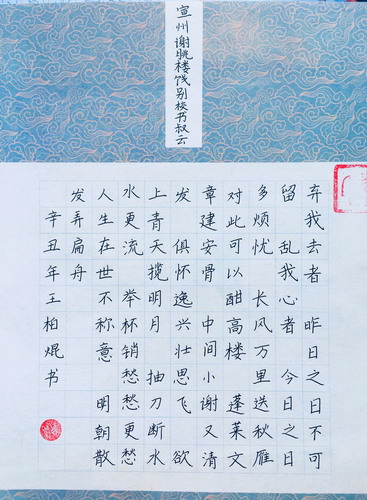 宣州谢眺楼饯别校书叔云
弃我去者 昨日之日不可
留 乱我心者 今日之日
多烦忧 长风万里送秋雁
对此可以酣高楼 蓬莱文
章建安骨 中间小谢又清
发 俱怀逸兴壮思飞 欲
上青天揽明月 抽刀断水
水更流 举杯销愁愁更愁
人生在世不称意 明朝散
发弄扁舟
辛丑年王柏焜书